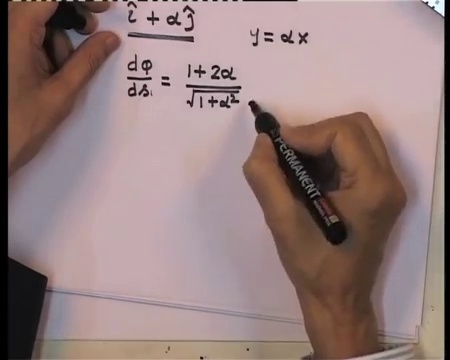 î + αĵ
y = αx
dφ/ds₁ = (1 + 2α)/√(1 + α²)
PERMANENT